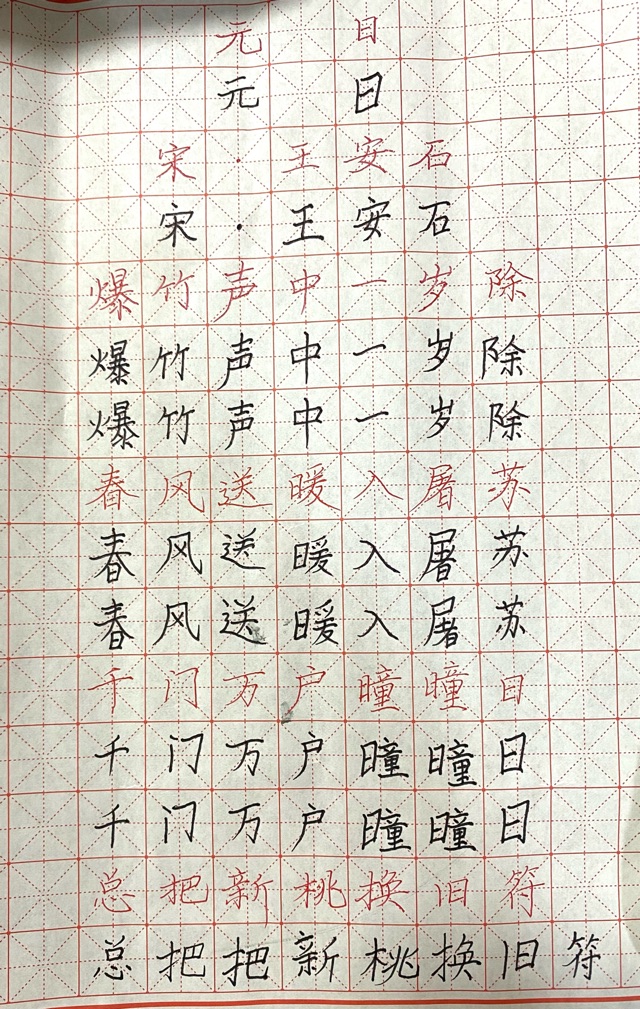 元日
元日
宋·王安石
宋·王安石
爆竹声中一岁除
爆竹声中一岁除
爆竹声中一岁除
春风送暖入屠苏
春风送暖入屠苏
春风送暖入屠苏
千门万户曈曈日
千门万户曈曈日
千门万户曈曈日
总把新桃换旧符
总把把新桃换旧符